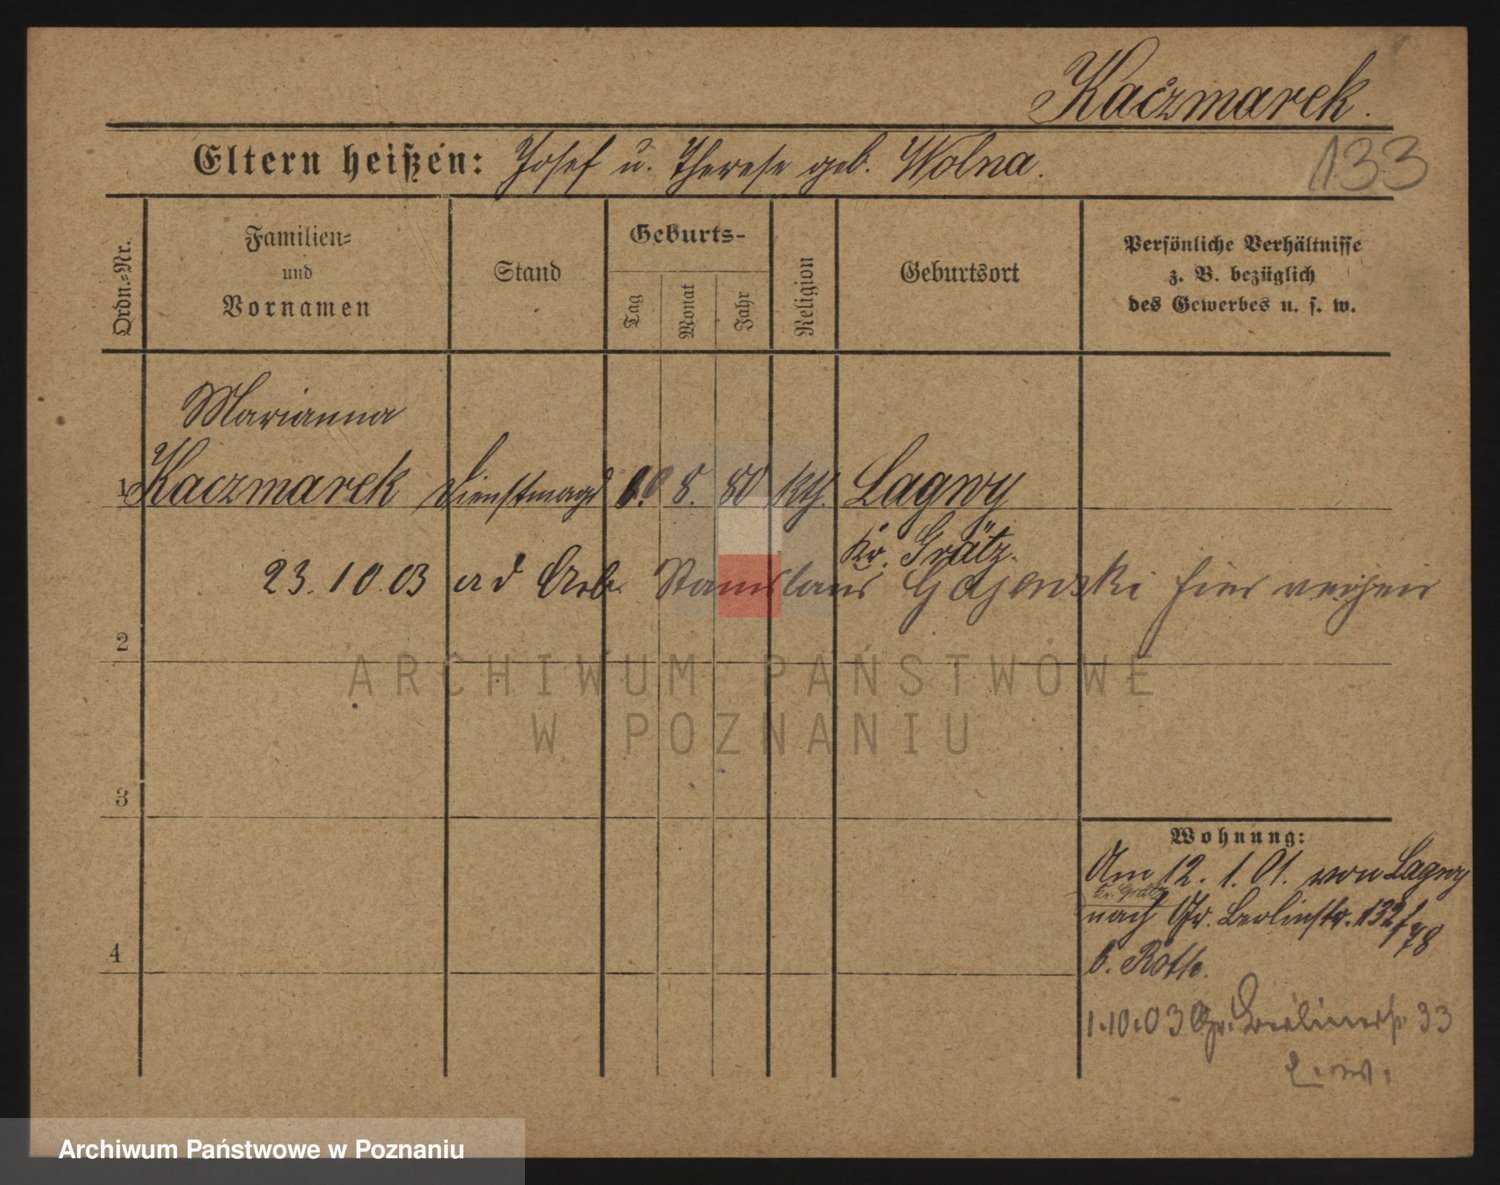 Kaczmarek.
Eltern heißen: Josef u. Therese geb. Wolna.
133
Ordn.-Nr.
Familien-
und
Vornamen
Stand
Geburts-
Tag
Monat
Jahr
Religion
Geburtsort
Persönliche Verhältnisse
z. B. bezüglich
des Gewerbes u. s. w.
Marianna
1 Kaczmarek Dienstmagd 8. 80 kth. Lagwy
Kr. Grätz.
23.10.03 ad Arb. Stanislaus Gajewski hier verheir
2
ARCHIWUM PAŃSTWOWE
W POZNANIU
3
Wohnung:
Am 12.1.01. von Lagwy
Kr. Grätz
nach Gr. Berlinstr. 132/78
b. Roth.
4
1.10.03 Gr. Berlinerst 33
Archiwum Państwowe w Poznaniu